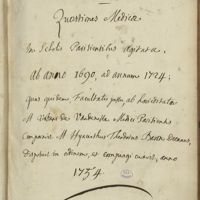 Questiones Medicæ
In Scholis Parisiensibus Agitatæ,
Ab anno 1690, ad annum 1724;
quas quidem Facultatis jussu, ab hæreditate
M de Vandenesse Medici Parisiensis
comparavit M Hyacinthus Theodorus Baron Decanus,
in ordinem, et compingi curavit, anno
1754